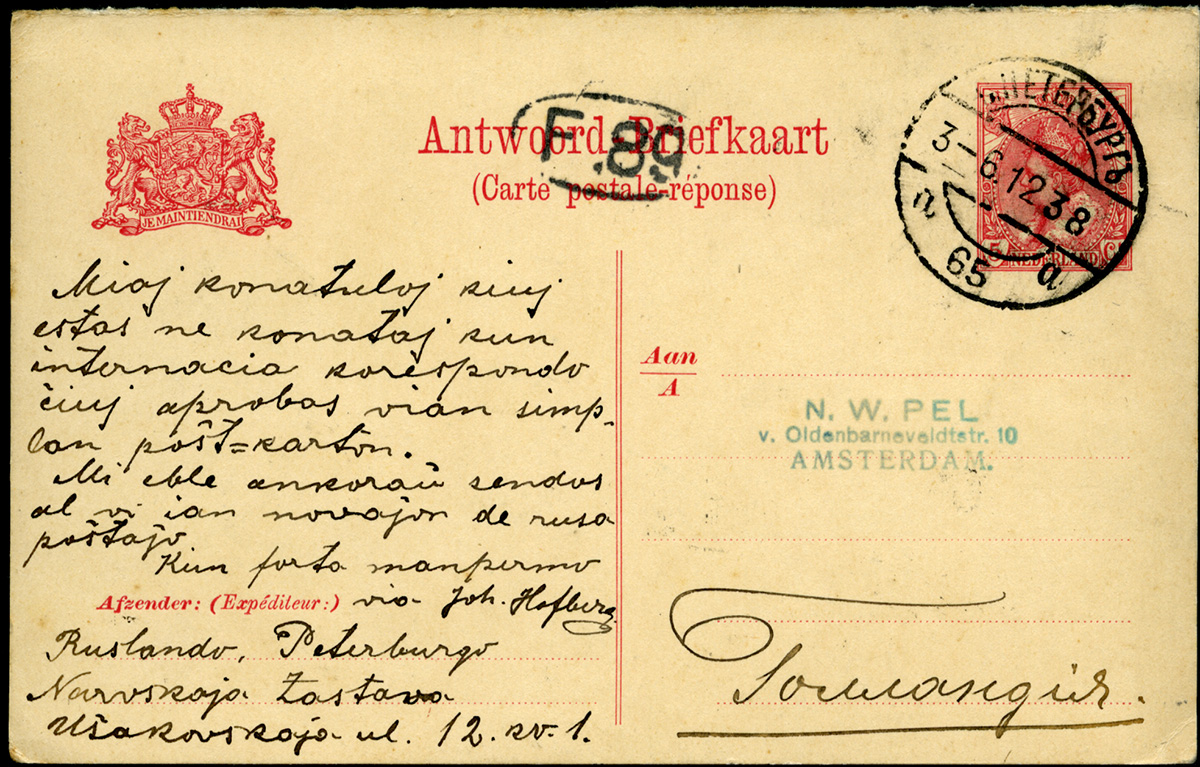 JE MAINTIENDRAI
Antwoord-Briefkaart
(Carte postale-réponse)
F. 89
ПЕТЕРБУРГЪ
3-6 12 38
65
NEDERLAND
5 C
Miaj konatuloj kiuj
estas ne konataj kun
internacia korespondo
ĉiuj aprobas vian simp-
lan poŝt=karton.
Mi eble ankoraŭ sendos
al vi ian novaĵon de rusa
poŝtaĵo
Kun forta manpermo
Afzender: (Expéditeur:) via Joh. Hofberg
Ruslando, Peterburgo
Narvskaja Zastava
Uŝakovskaja ul. 12. kv. 1.
Aan
A
N. W. PEL
v. Oldenbarneveldtstr. 10
AMSTERDAM.
Голландiя.